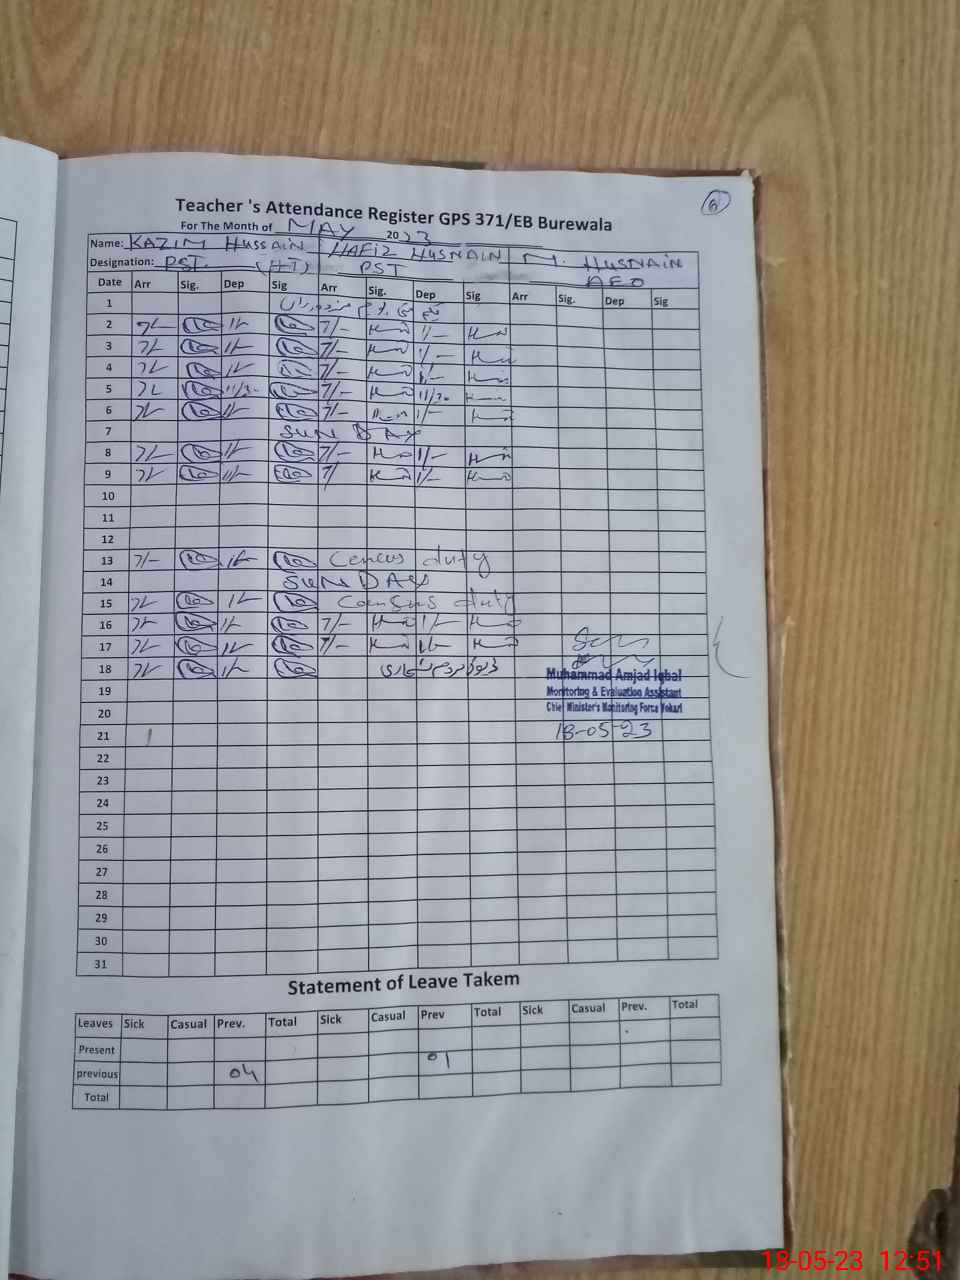 6
Teacher 's Attendance Register GPS 371/EB Burewala
For The Month of MAY 2023
Name: KAZIM HUSSAIN HAFIZ HUSNAIN M. HUSNAIN
Designation: PST. (HT) PST AEO
Date Arr Sig. Dep Sig Arr Sig. Dep Sig Arr Sig. Dep Sig
1 یکم مئی
2 7/- 1/- 7/- 1/-
3 7/- 1/- 7/- 1/-
4 7/- 1/- 7/- 1/-
5 7/- 11/30 7/- 11/30
6 7/- 1/- 7/- 1/-
7 SUNDAY
8 7/- 1/- 7/- 1/-
9 7/- 1/- 7/ 1/-
10
11
12
13 7/- 1/- Cencus duty
14 SUNDAY
15 7/- 1/- Consus duty
16 7/- 1/- 7/- 1/-
17 7/- 1/- 7/- 1/-
18 7/- 1/- ڈیوٹی مردم شماری
Muhammad Amjad Iqbal
19
Monitoring & Evaluation Assistant
20
Chief Minister's Monitoring Force Vehari
21
18-05-23
22
23
24
25
26
27
28
29
30
31
Statement of Leave Takem
Leaves Sick Casual Prev. Total Sick Casual Prev Total Sick Casual Prev. Total
Present 01
previous 04
Total
18-05-23 12:51